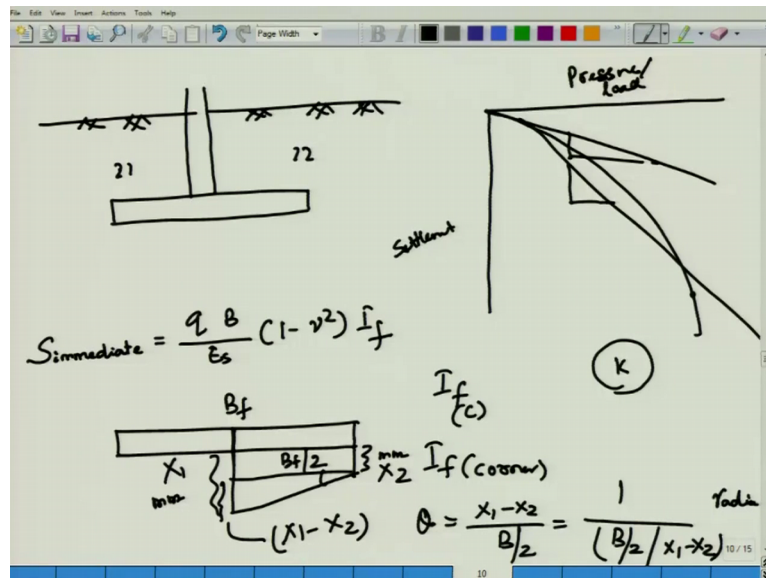 File Edit View Insert Actions Tools Help
Page Width
B I
Pressure/
Load
21
22
Settlement
S immediate = q B / Es (1 - ν²) If
K
Bf
If (c)
X1
mm
Bf/2
mm
X2
If (corner)
(X1 - X2)
θ = X1 - X2 / B/2 = 1 / (B/2 / X1 - X2)
radia
10 / 15
10